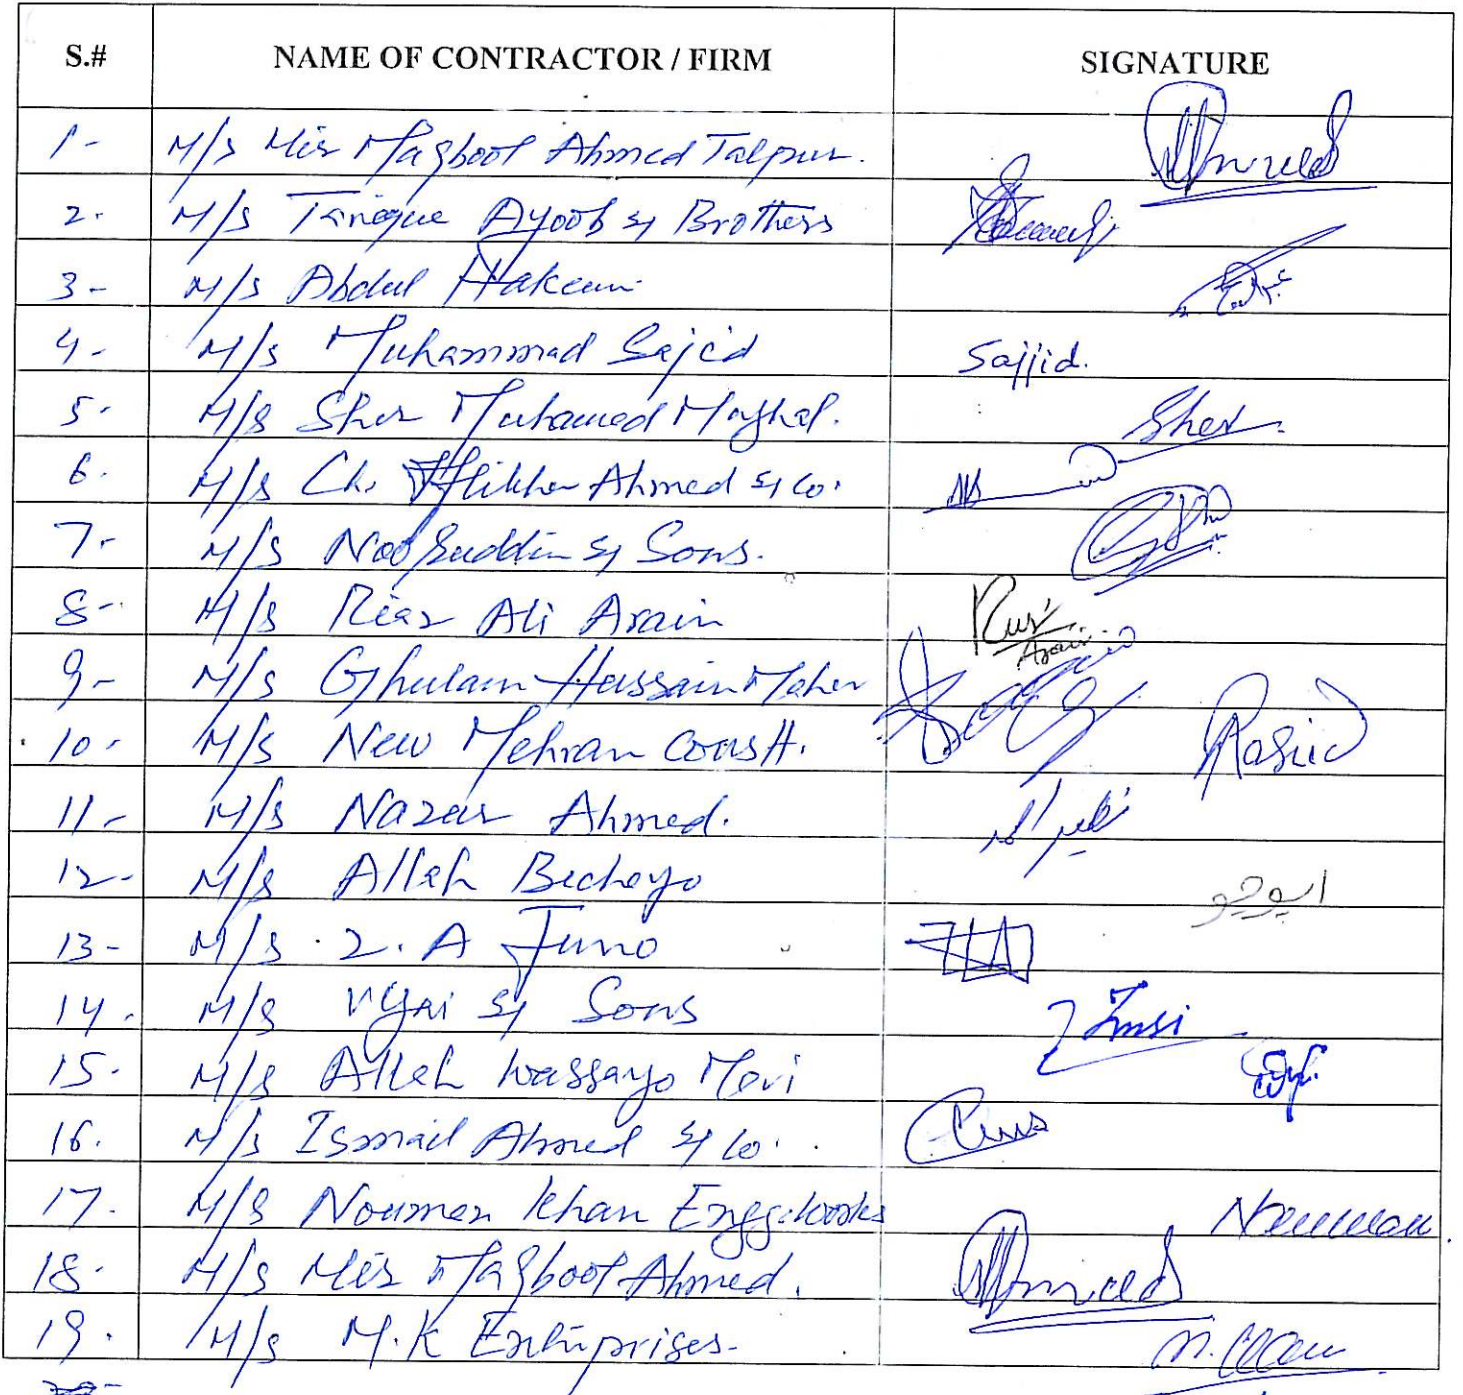 S.# NAME OF CONTRACTOR / FIRM SIGNATURE
1- M/s Mir Maqbool Ahmed Talpur.
2. M/s Tarique Ayoob & Brothers
3- M/s Abdul Hakeem.
4- M/s Muhammad Sajid Sajjid.
5- M/s Sher Muhamed Mughal. Sher
6. M/s Ch. Iftikhar Ahmed & Co.
7- M/s Nooruddin & Sons.
8- M/s Riaz Ali Arain Arain
9- M/s Ghulam Hussain Maher
10- M/s New Mehran Constt. Rashid
11- M/s Nazar Ahmed.
12- M/s Allah Bachayo
13- M/s Z.A Juno
14. M/s & Sons
15. M/s Allah Wassayo Mari
16. M/s Ismail Ahmed & Co.
17. M/s Nouman Khan Engg.works Nouman
18. M/s Mir Maqbool Ahmed.
19. M/s M.K Enterprises-